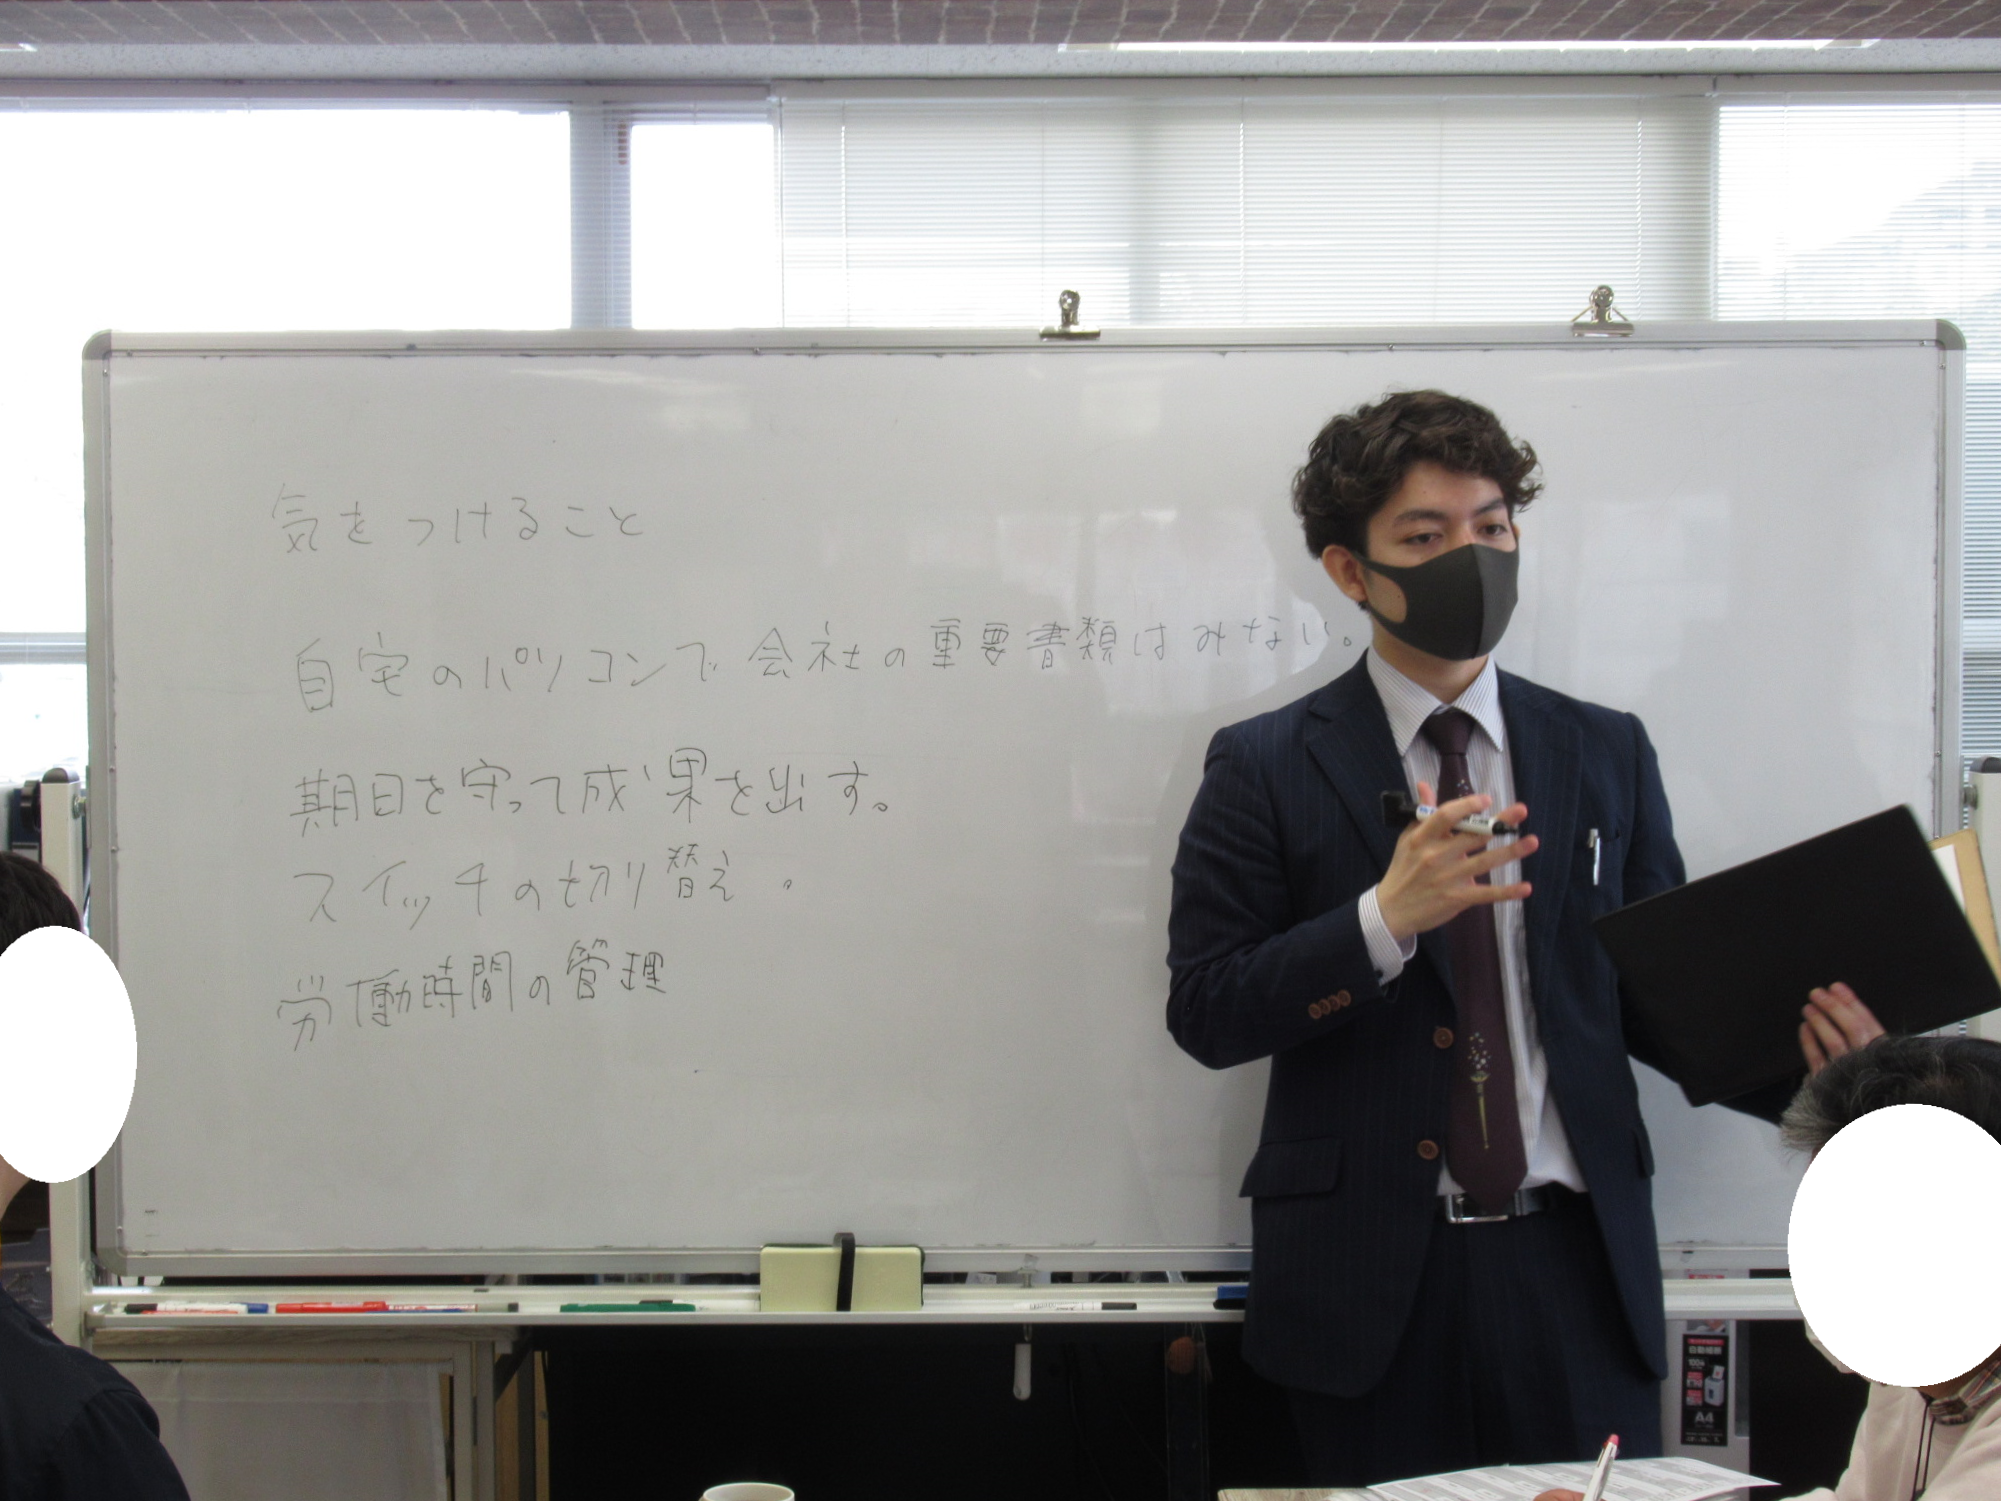 気をつけること
自宅のパソコンで会社の重要書類はみない。
期日を守って成果を出す。
スイッチの切り替え。
労働時間の管理
A4